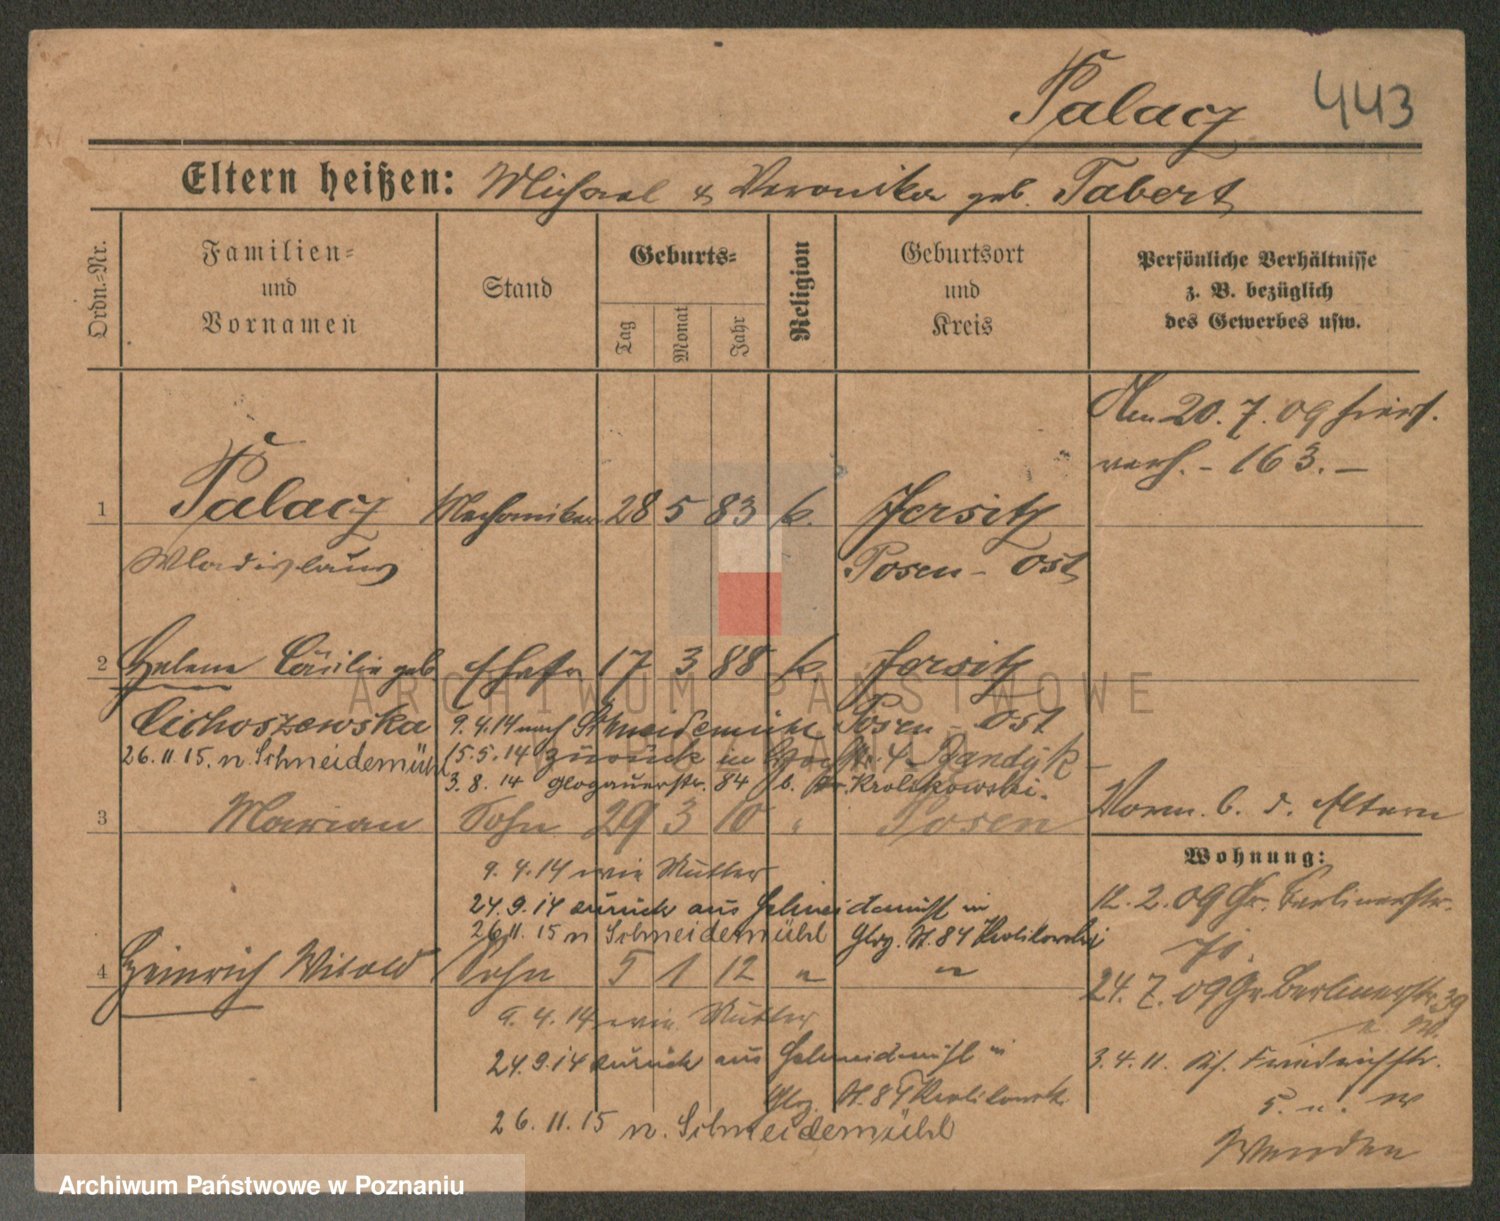 Palacz 443
Eltern heißen: Michael & Veronika geb. Tabert
Ordn.-Nr.
Familien-
und
Vornamen
Stand
Geburts-
Tag
Monat
Jahr
Religion
Geburtsort
und
Kreis
Persönliche Verhältnisse
z. B. bezüglich
des Gewerbes usw.
Am 20. 7. 09 hiers.
verh. - 163. -
1 Palacz Mechaniker 28 5 83 k. Jersitz
Wladislaus Posen - Ost
2 Helene Cäcilie geb. Ehefr. 17 3 88 k. Jersitz
Cichoszewska 9. 4. 14 nach Schneidemühl Posen - Ost
26. 11. 15. n. Schneidemühl 15. 5. 14 zurück in
3. 8. 14 Glogauerstr. 84 b. Krolikowski.
3 Marian Sohn 29 3 10 " Posen
Vorm. b. d. Eltern
Wohnung:
9. 4. 14 wie Mutter
24. 9. 14 zurück aus Schneidemühl in
26. 11. 15 n Schneidemühl Glog. St. 84 Krolikowski
12. 2. 09 Gr. Berlinerstr.
4 Heinrich Witold Sohn 5 1 12 " "
24. 7. 09 Gr. Berlinerstr. 39
9. 4. 14 wie Mutter
24. 9. 14 zurück aus Schneidemühl in
Glog. St. 84 Krolikowski
3. 4. 11. Friedrichstr.
5. u. W
26. 11. 15 n. Schneidemühl
Wenden
ARCHIWUM PAŃSTWOWE
W POZNANIU
Archiwum Państwowe w Poznaniu